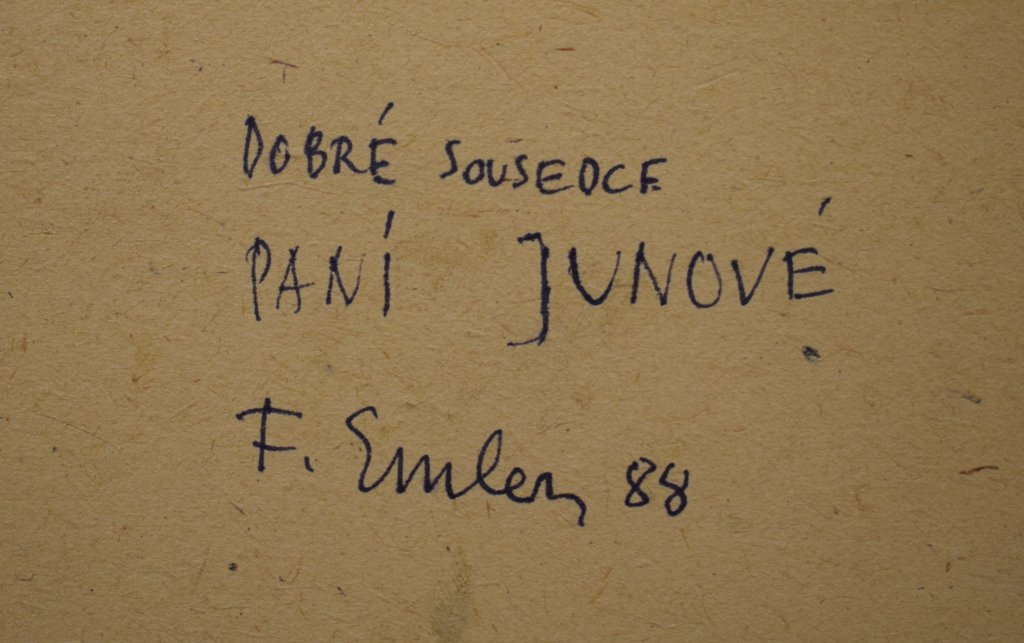 DOBRÉ SOUSEDCE
PANÍ JUNOVÉ
F. Emler 88